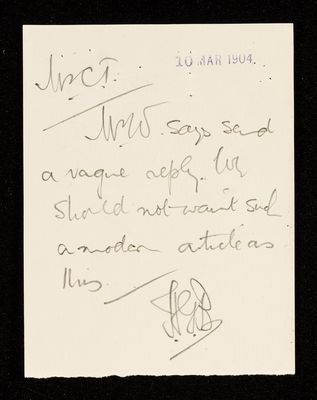 Mr C.T.
10 MAR 1904.
Mr W. says send
a vague reply. We
should not want such
a modern article as
this.